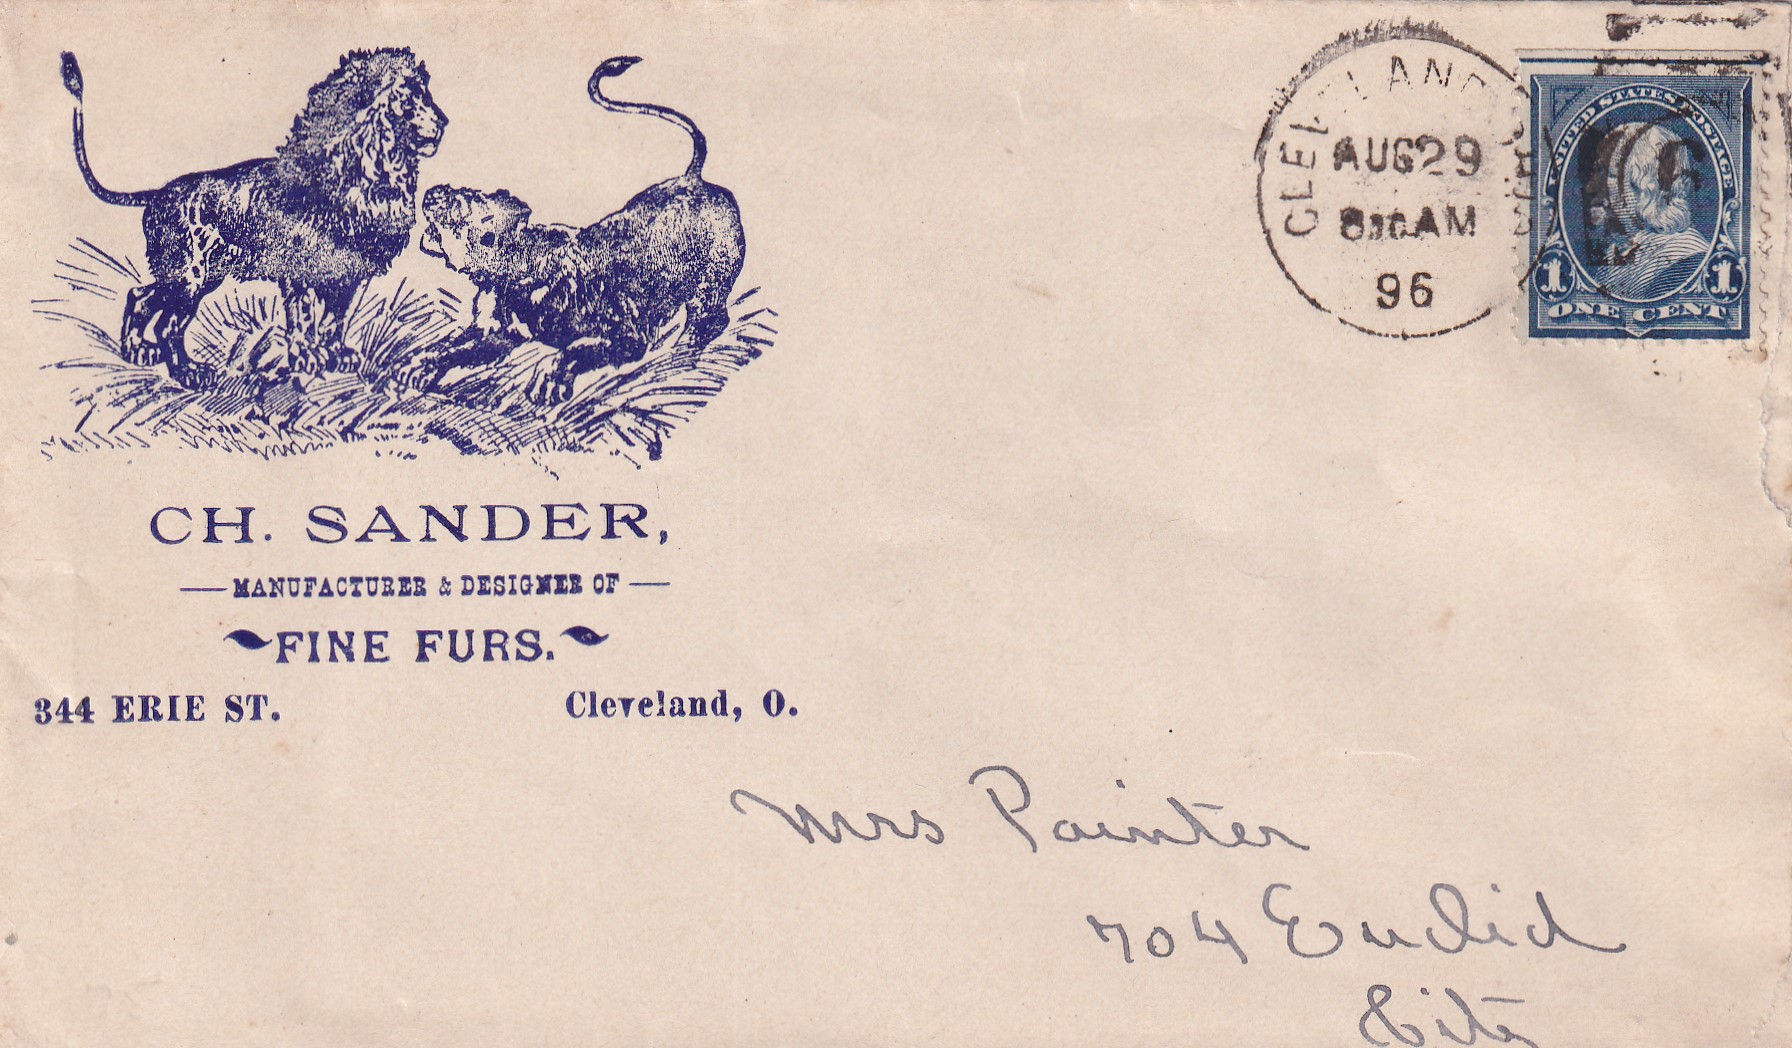 CH. SANDER,
MANUFACTURER & DESIGNER OF
FINE FURS.
344 ERIE ST. Cleveland, O.
CLEVELAND
AUG 29
AM
96
UNITED STATES POSTAGE
1 1
ONE CENT
6
Mrs Painter
704 Euclid
City